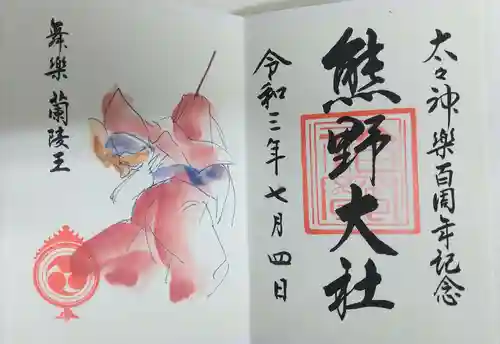 太々神樂百周年記念
熊野大社
令和三年七月四日
舞樂 蘭陵王